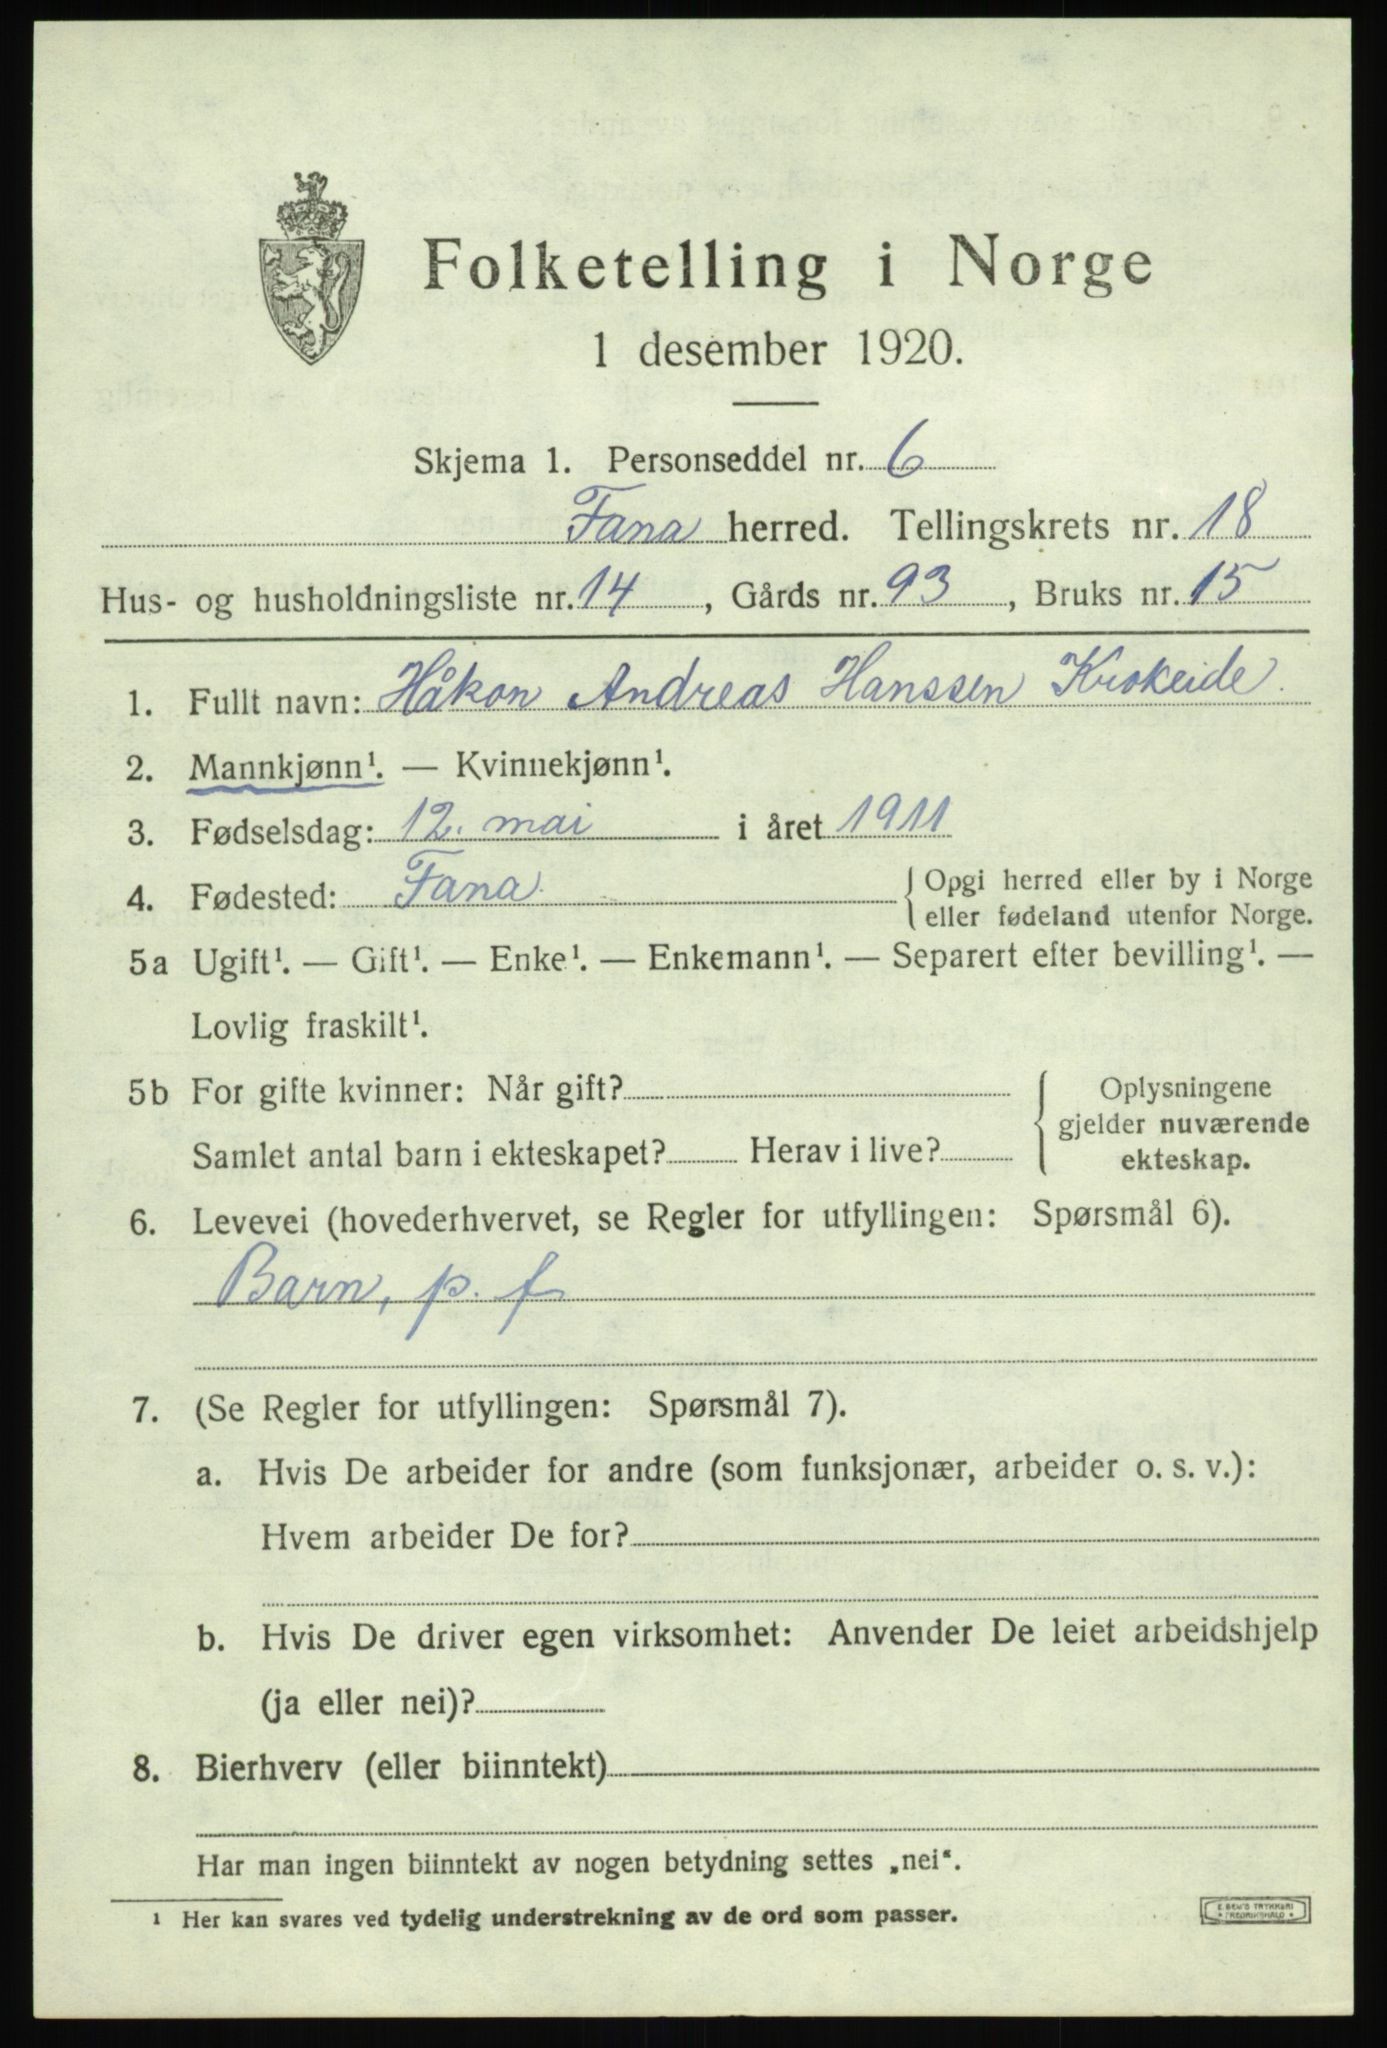 Folketelling i Norge
1 desember 1920.
Skjema 1. Personseddel nr. 6
Fana herred. Tellingskrets nr. 18
Hus- og husholdningsliste nr. 14, Gårds nr. 93, Bruks nr. 15
1. Fullt navn: Håkon Andreas Hanssen Krokeide
2. Mannkjønn¹. — Kvinnekjønn¹.
3. Fødselsdag: 12. mai i året 1911
4. Fødested: Fana { Opgi herred eller by i Norge
eller fødeland utenfor Norge.
5a Ugift¹. — Gift¹. — Enke¹. — Enkemann¹. — Separert efter bevilling¹. —
Lovlig fraskilt¹.
5b For gifte kvinner: Når gift? { Oplysningene
gjelder nuværende
Samlet antal barn i ekteskapet? Herav i live?
ekteskap.
6. Levevei (hovederhvervet, se Regler for utfyllingen: Spørsmål 6).
Barn, p. f
7. (Se Regler for utfyllingen: Spørsmål 7).
a. Hvis De arbeider for andre (som funksjonær, arbeider o. s. v.):
Hvem arbeider De for?
b. Hvis De driver egen virksomhet: Anvender De leiet arbeidshjelp
(ja eller nei)?
8. Bierhverv (eller biinntekt)
Har man ingen biinntekt av nogen betydning settes „nei“.
¹ Her kan svares ved tydelig understrekning av de ord som passer.
E. SEM'S TRYKKERI
* FREDRIKSHALD *